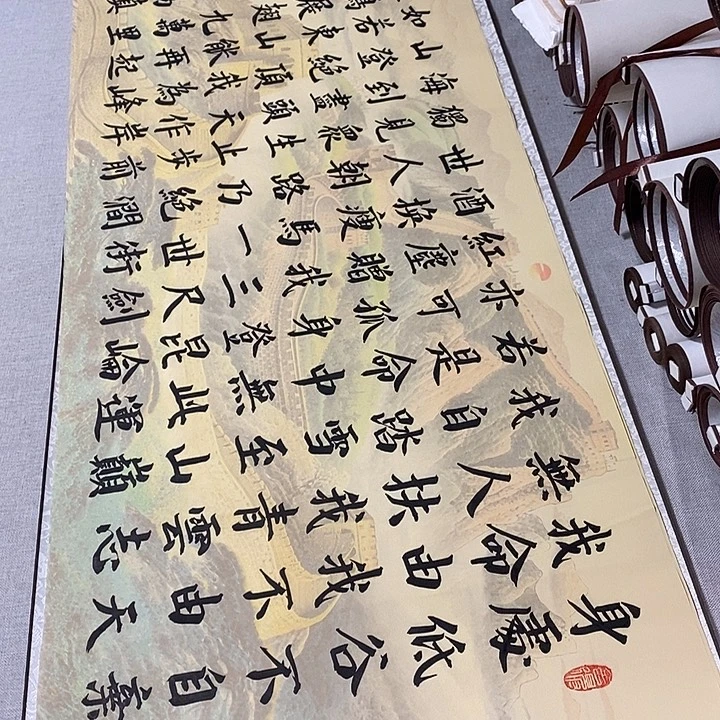 身處低谷不自棄
我命由我不由天
無人扶我青雲志
我自踏雪至山巔
若是命中無此運
亦可孤身登昆崘
紅塵贈我三尺劍
酒換瘦馬一世
世人朝路乃絕澗
獨見眾生止步前
海到盡頭天作岸
山登絕頂我為峰
如若東山能再起
展翅九萬里